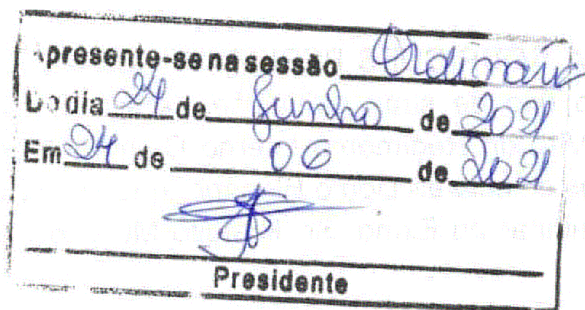 Apresente-se na sessão Ordinária
Do dia 24 de Junho de 2021
Em 24 de 06 de 2021
Presidente